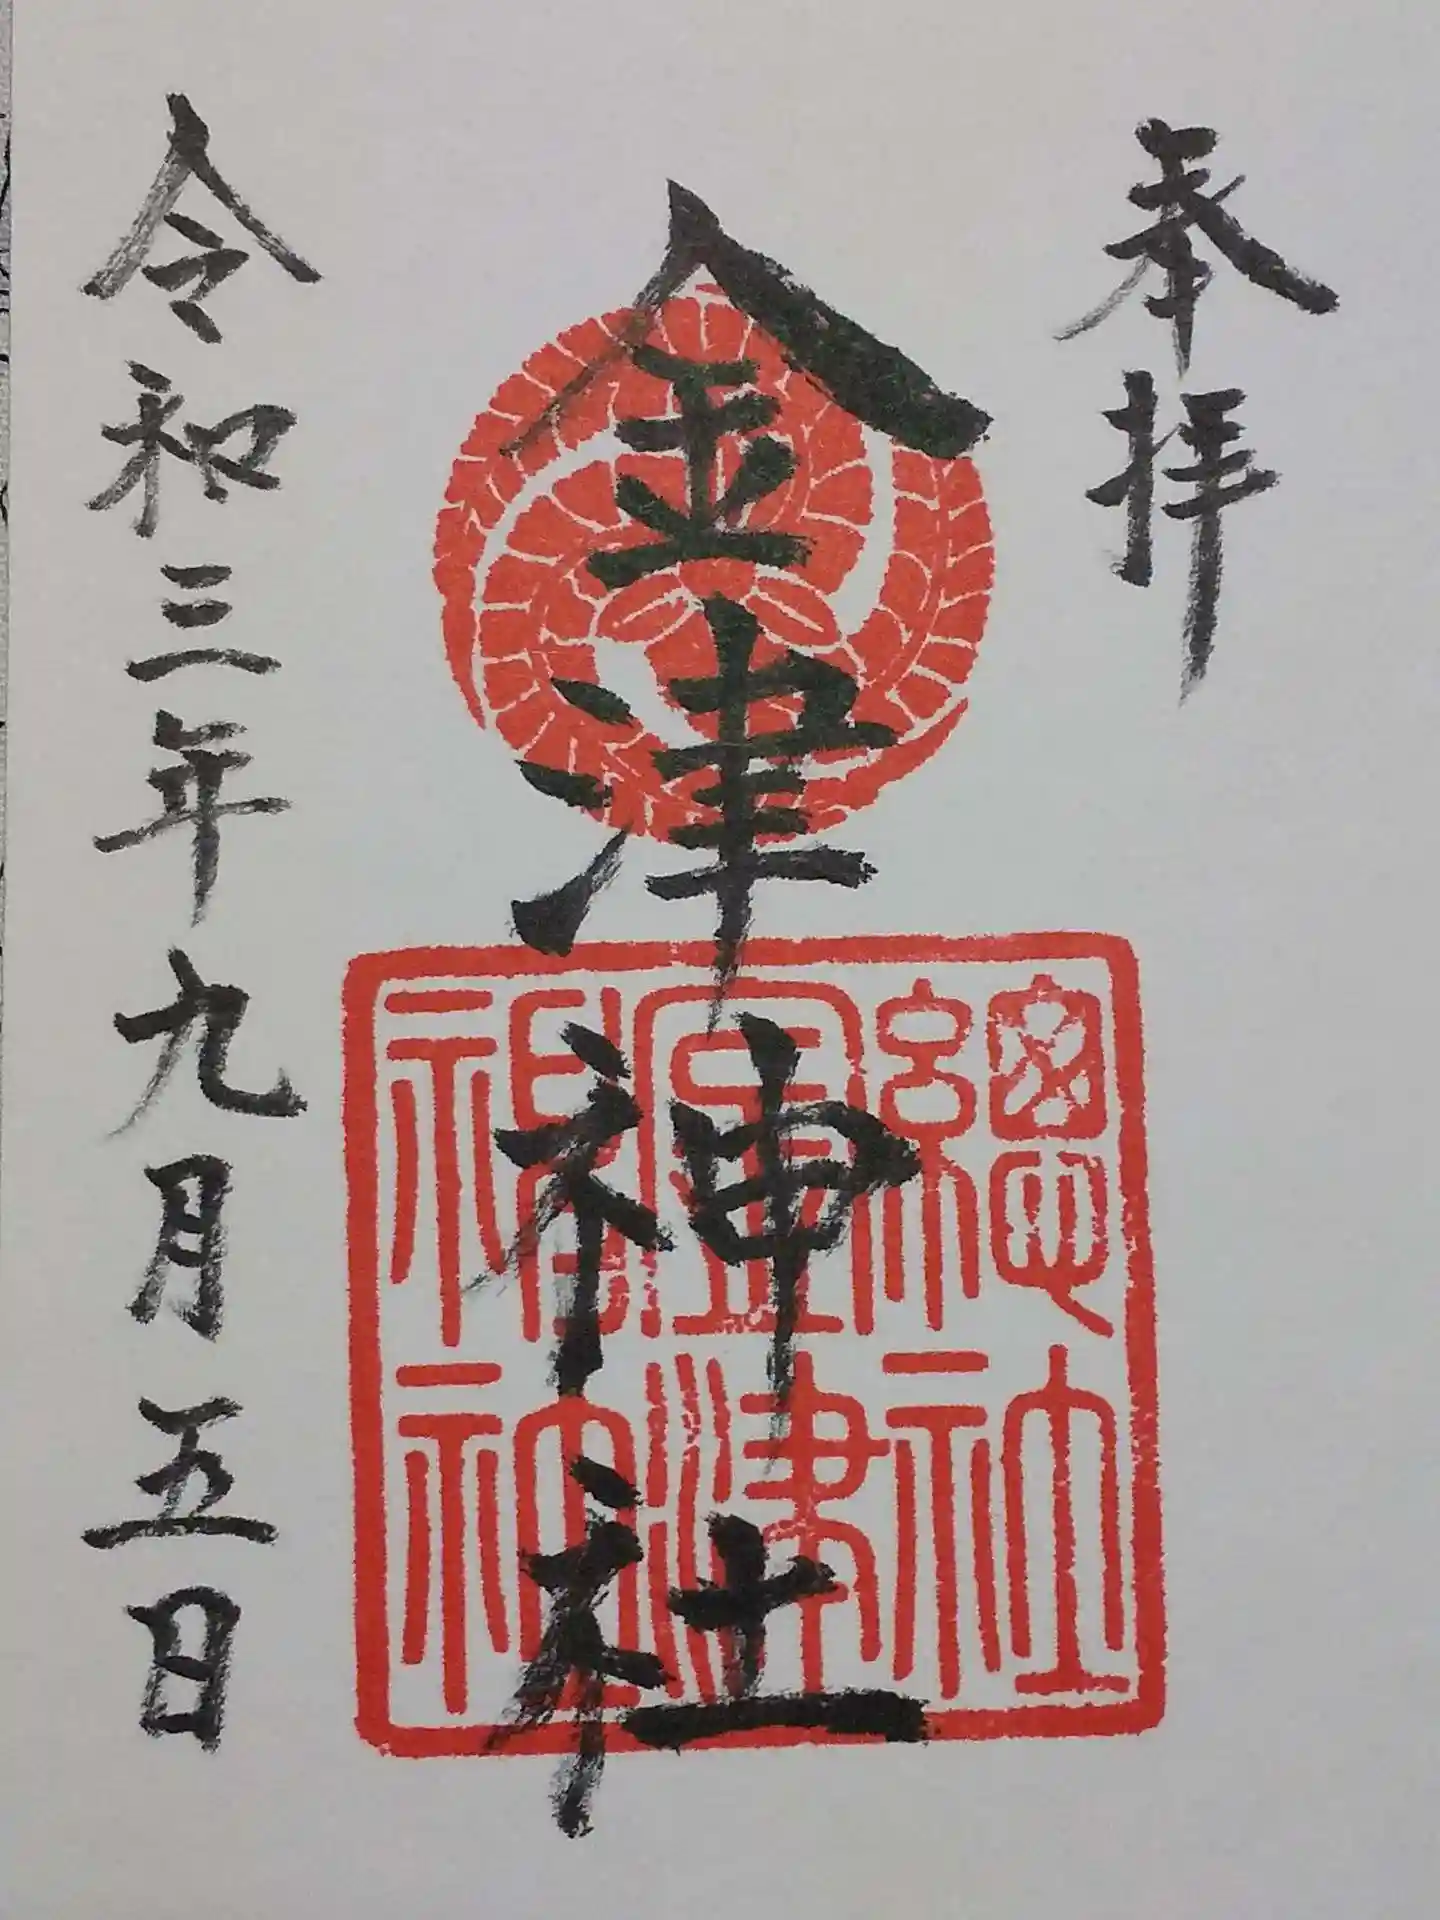 奉拝
金津神社
總社
金津
福神
令和三年九月五日